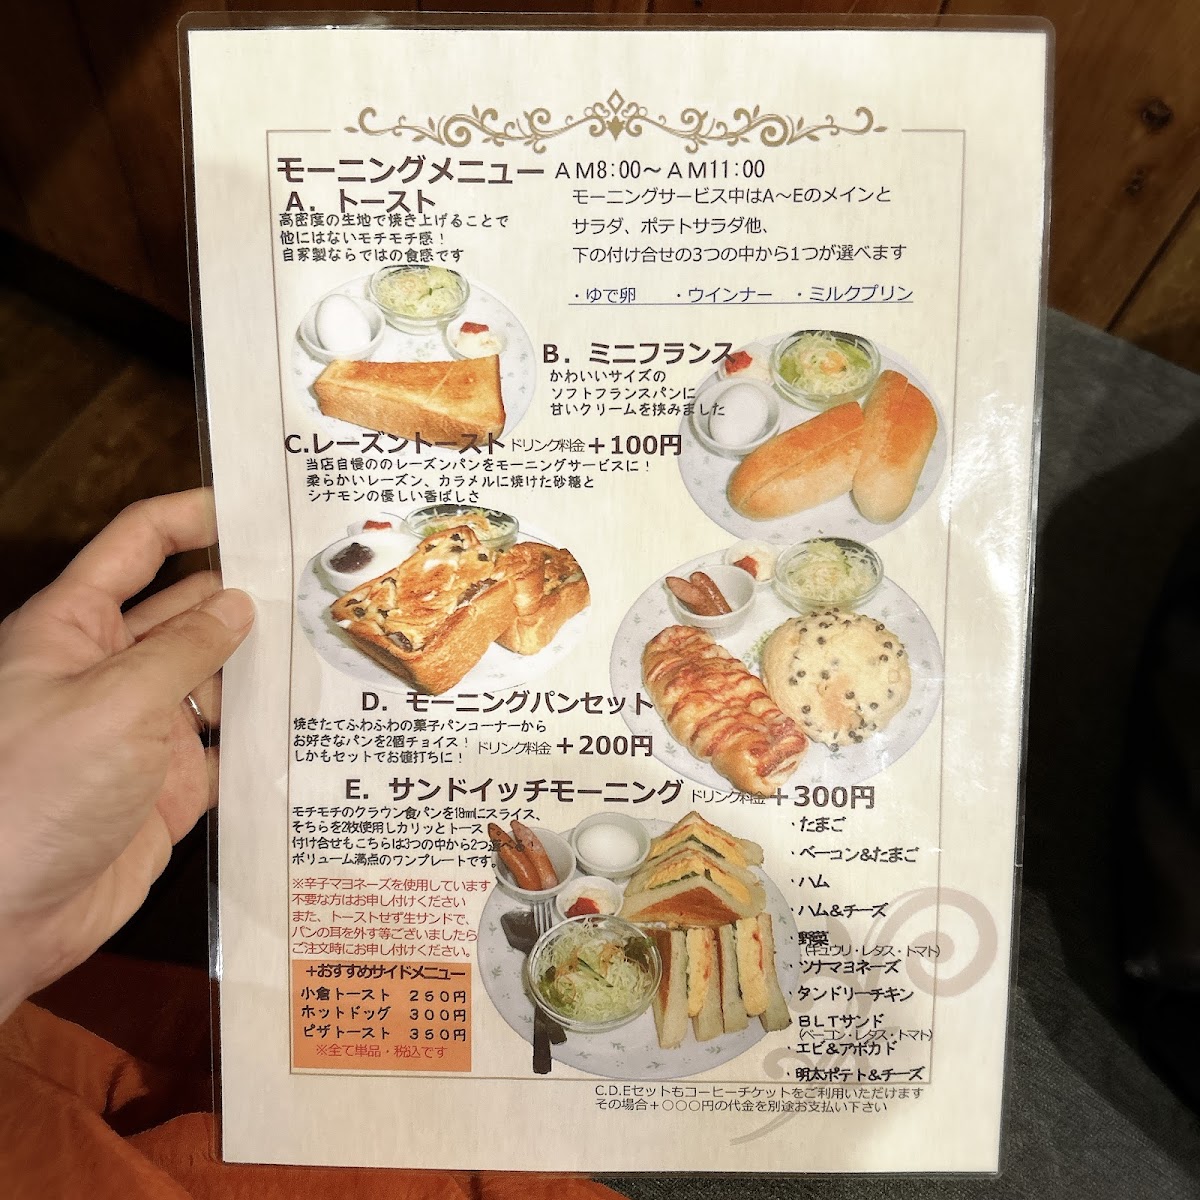 モーニングメニュー AM8:00～AM11:00
A．トースト
高密度の生地で焼き上げることで
他にはないモチモチ感！
自家製ならではの食感です
モーニングサービス中はA～Eのメインと
サラダ、ポテトサラダ他、
下の付け合せの3つの中から1つが選べます
・ゆで卵 ・ウインナー ・ミルクプリン
B．ミニフランス
かわいいサイズの
ソフトフランスパンに
甘いクリームを挟みました
C.レーズントースト ドリンク料金＋100円
当店自慢ののレーズンパンをモーニングサービスに！
柔らかいレーズン、カラメルに焼けた砂糖と
シナモンの優しい香ばしさ
D．モーニングパンセット
焼きたてふわふわの菓子パンコーナーから
お好きなパンを2個チョイス！ ドリンク料金＋200円
しかもセットでお値打ちに！
E．サンドイッチモーニング ドリンク料金＋300円
モチモチのクラウン食パンを18mmにスライス、
そちらを2枚使用しカリッとトース
付け合せもこちらは3つの中から2つ選べる！
ボリューム満点のワンプレートです。
※辛子マヨネーズを使用しています
不要な方はお申し付けください
また、トーストせず生サンドで、
パンの耳を外す等ございましたら
ご注文時にお申し付けください。
＋おすすめサイドメニュー
小倉トースト 250円
ホットドッグ 300円
ピザトースト 350円
※全て単品・税込です
・たまご
・ベーコン&たまご
・ハム
・ハム&チーズ
・野菜
（キュウリ・レタス・トマト）
・ツナマヨネーズ
・タンドリーチキン
・BLTサンド
（ベーコン・レタス・トマト）
・エビ&アボカド
・明太ポテト&チーズ
C.D.Eセットもコーヒーチケットをご利用いただけます
その場合＋○○○円の代金を別途お支払い下さい